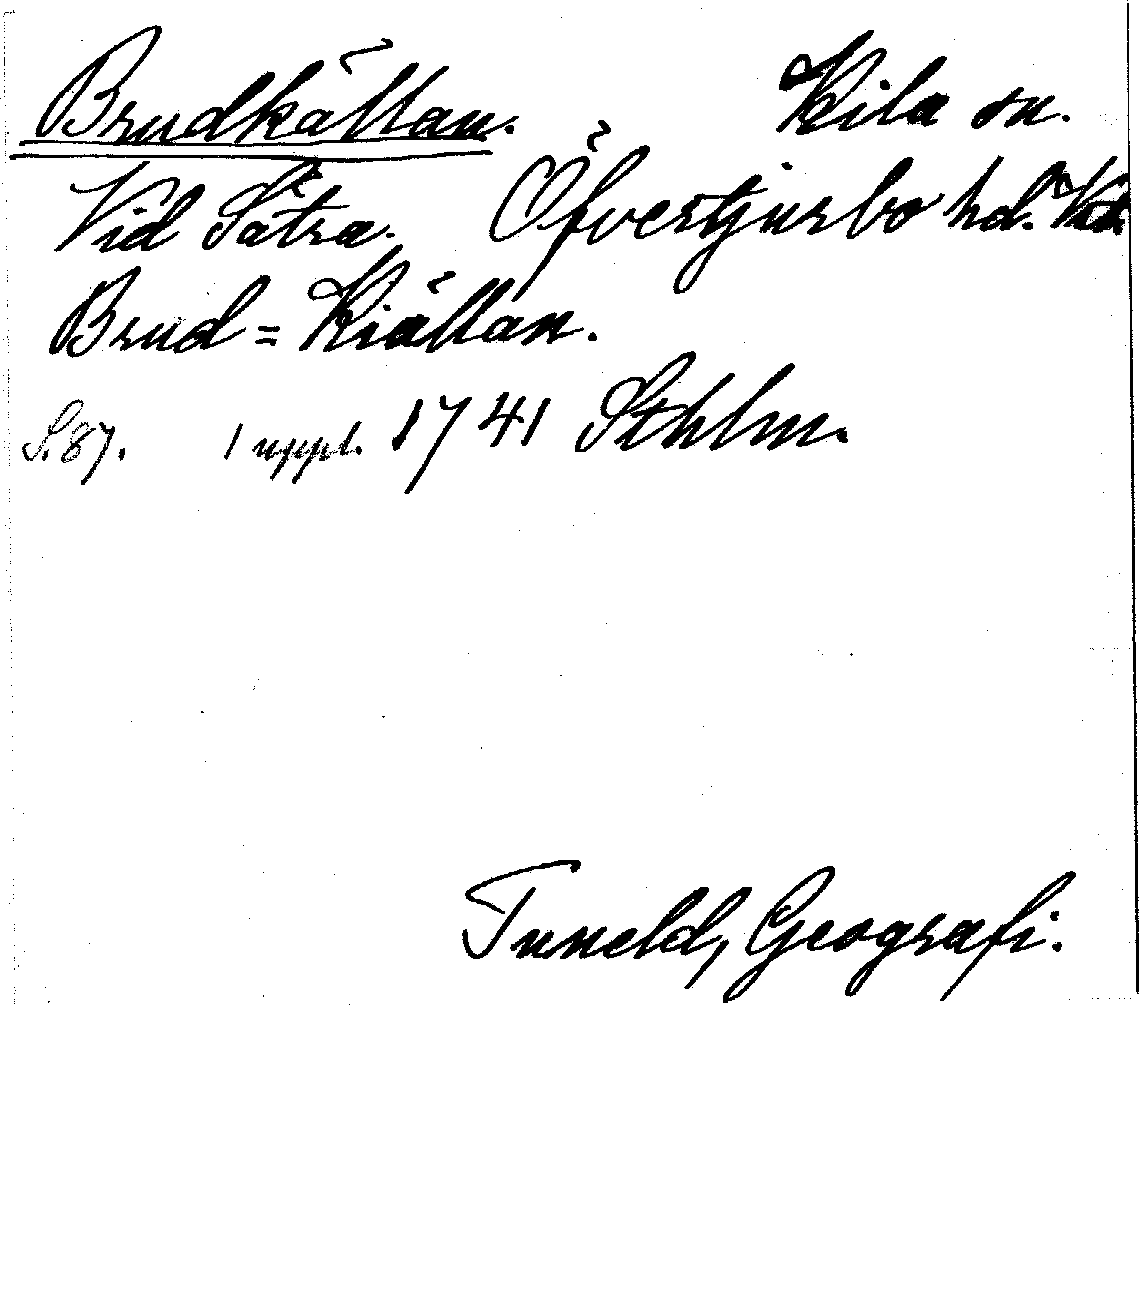 Brudkällan. Kila sn.
Vid Sätra. Öfvertjurbo hd.
Brud=Kiällan.
S. 87. 1 uppl. 1741 Sthlm.
Tuneld, Geografi.